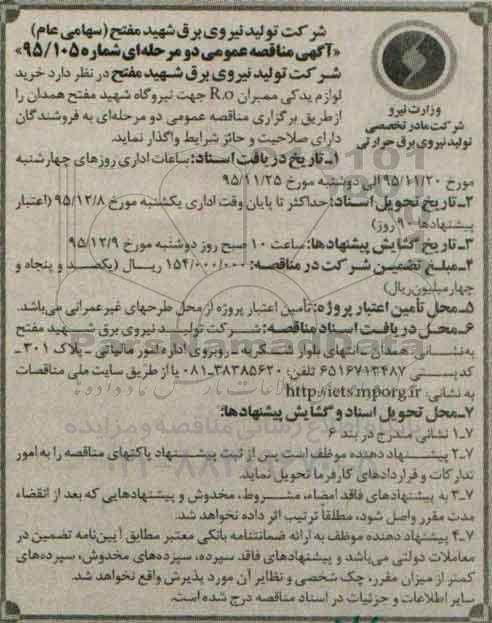 شرکت تولید نیروی برق شهید مفتح (سهامی عام)
«آگهی مناقصه عمومی دو مرحله‌ای شماره ۹۵/۱۰۵»
شرکت تولید نیروی برق شهید مفتح در نظر دارد خرید
لوازم یدکی ممبران R.o جهت نیروگاه شهید مفتح همدان را
ازطریق برگزاری مناقصه عمومی دو مرحله‌ای به فروشندگان
دارای صلاحیت و حائز شرایط واگذار نماید.
وزارت نیرو
شرکت مادر تخصصی
تولید نیروی برق حرارتی
۱ـ تاریخ دریافت اسناد: ساعات اداری روزهای چهارشنبه
مورخ ۹۵/۱۱/۲۰ الی دوشنبه مورخ ۹۵/۱۱/۲۵
۲ـ تاریخ تحویل اسناد: حداکثر تا پایان وقت اداری یکشنبه مورخ ۹۵/۱۲/۸ (اعتبار
پیشنهادها ۹۰ روز)
۳ـ تاریخ گشایش پیشنهادها: ساعت ۱۰ صبح روز دوشنبه مورخ ۹۵/۱۲/۹
۴ـ مبلغ تضمین شرکت در مناقصه: ۱۵۴/۰۰۰/۰۰۰ ریال (یکصد و پنجاه و
چهار میلیون ریال)
۵ـ محل تأمین اعتبار پروژه: تأمین اعتبار پروژه از محل طرحهای غیرعمرانی می‌باشد.
۶ـ محل دریافت اسناد مناقصه: شرکت تولید نیروی برق شهید مفتح
به نشانی: همدان ـ انتهای بلوار شکریه ـ روبروی اداره امور مالیاتی ـ پلاک ۳۰۱ ـ
کدپستی ۶۵۱۶۷۱۳۴۸۷ تلفن: ۳۸۳۸۵۶۲۰-۰۸۱ یا از طریق سایت ملی مناقصات
به نشانی: http://iets.mporg.ir
۷ـ محل تحویل اسناد و گشایش پیشنهادها:
۷ـ۱ نشانی مندرج در بند ۶
۷ـ۲ پیشنهاد دهنده موظف است پس از ثبت پیشنهاد پاکتهای مناقصه را به امور
تدارکات و قراردادهای کارفرما تحویل نماید.
۷ـ۳ به پیشنهادهای فاقد امضاء، مشروط، مخدوش و پیشنهادهایی که بعد از انقضاء
مدت مقرر واصل شود، مطلقاً ترتیب اثر داده نخواهد شد.
۷ـ۴ پیشنهاد دهنده موظف به ارائه ضمانتنامه بانکی معتبر مطابق آیین‌نامه تضمین در
معاملات دولتی می‌باشد و پیشنهادهای فاقد سپرده، سپرده‌های مخدوش، سپرده‌های
کمتر از میزان مقرر، چک شخصی و نظایر آن مورد پذیرش واقع نخواهد شد.
سایر اطلاعات و جزئیات در اسناد مناقصه درج شده است.
ParsNamadData